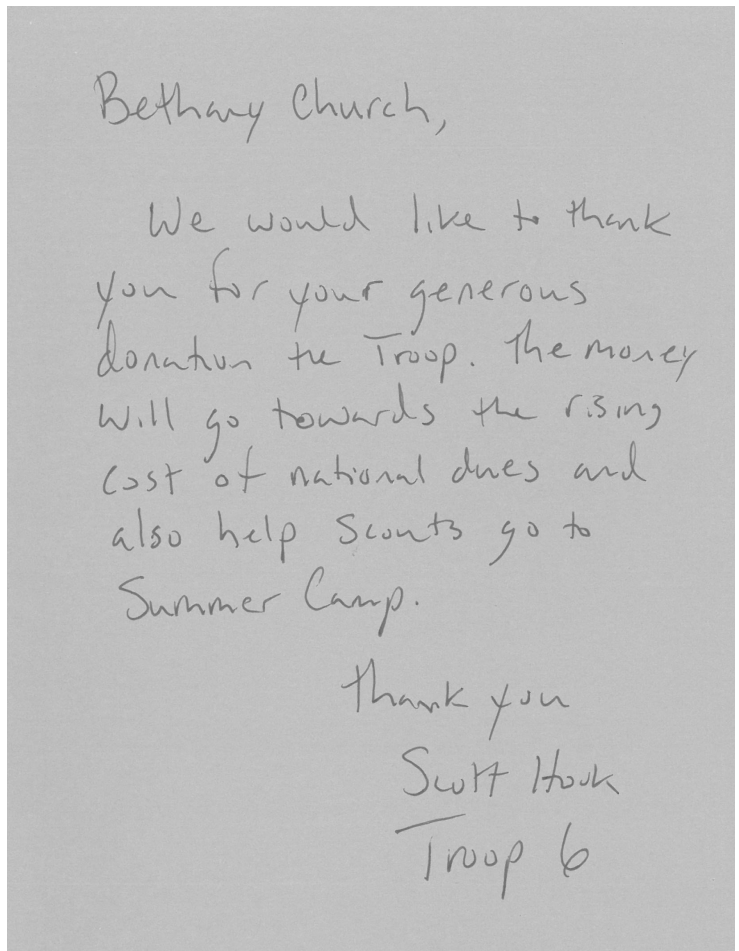 Bethany Church,
We would like to thank
you for your generous
donation the Troop. The money
will go towards the rising
cost of national dues and
also help Scouts go to
Summer Camp.
Thank you
Scott Houk
Troop 6